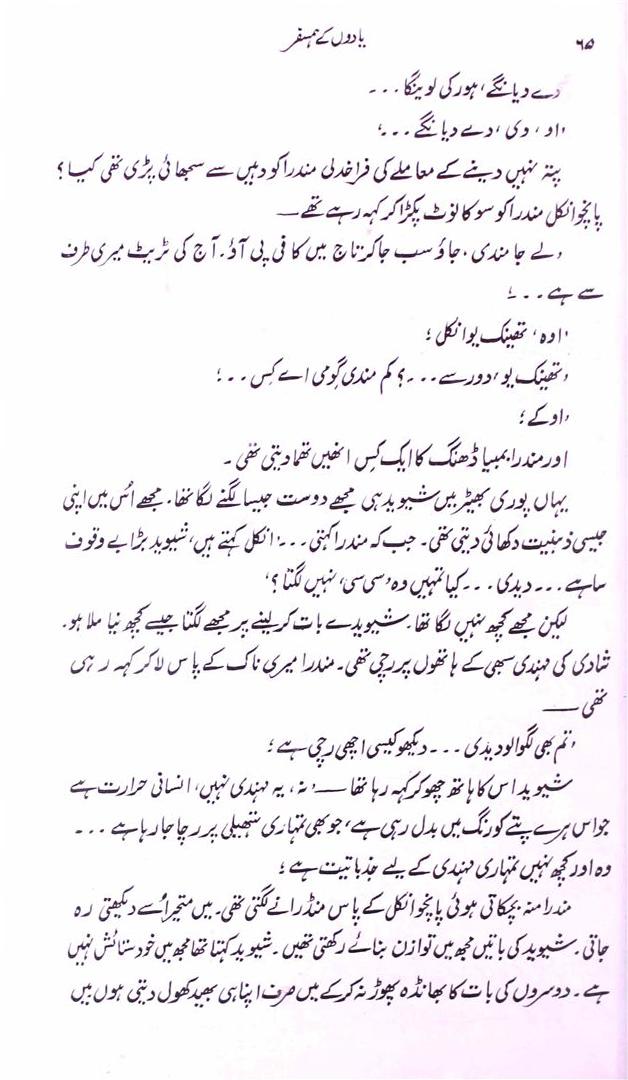 ۶۵
یادوں کے ہمسفر
دے دیانگے، ہور کی لوینگا ...
'او، دی، دے دیانگے ...'
پتہ نہیں دینے کے معاملے کی فراخدلی مندرا کو دہیں سے سجھائی پڑی تھی کیا؟
پانچو انکل مندرا کو سو کا نوٹ پکڑا کر کہہ رہے تھے —
'لے جا مندی، جاؤ سب جا کر تاج میں کافی پی آؤ۔ آج کی ٹریٹ میری طرف
سے ہے ...'
'اوہ، تھینک یو انکل؛
'تھینک یو، دور سے ...؟ کم مندی گومی اے کِس ...؛
'اوکے؛
اور مندرا بمبیا ڈھنگ کا ایک کِس انھیں تھما دیتی تھی۔
یہاں پوری بھیڑ میں شیوید ہی مجھے دوست جیسا لگنے لگا تھا۔ مجھے اُس میں اپنی
جیسی ذہنیت دکھائی دیتی تھی۔ جب کہ مندرا کہتی ...' انکل کہتے ہیں، شیوید بڑا بے وقوف
سا ہے ... دیدی ... کیا تمہیں وہ 'سی سی' نہیں لگتا؟'
لیکن مجھے کچھ نہیں لگا تھا۔ شیوید سے بات کر لینے پر مجھے لگتا جیسے کچھ نیا ملا ہو۔
شادی کی مہندی سبھی کے ہاتھوں پر رچی تھی۔ مندرا میری ناک کے پاس لا کر کہہ رہی
تھی —
'تم بھی لگوا لو دیدی ... دیکھو کیسی اچھی رچی ہے؛
شیوید اس کا ہاتھ چھو کر کہہ رہا تھا — 'نہ، یہ مہندی نہیں، انسانی حرارت ہے
جو اس ہرے پتے کو رنگ میں بدل رہی ہے، جو بھی تمہاری ہتھیلی پر رچا جا رہا ہے ...
وہ اور کچھ نہیں تمہاری مہندی کے لیے جذباتیت ہے؛
مندرا منہ بچکاتی ہوئی پانچو انکل کے پاس منڈرانے لگتی تھی۔ میں متحیر اُسے دیکھتی رہ
جاتی۔ شیوید کی باتیں مجھ میں توازن بنائے رکھتی تھیں۔ شیوید کہتا تھا مجھ میں خود ستائش نہیں
ہے۔ دوسروں کی بات کا بھانڈہ پھوڑ نہ کر کے میں صرف اپنا ہی بھید کھول دیتی ہوں میں